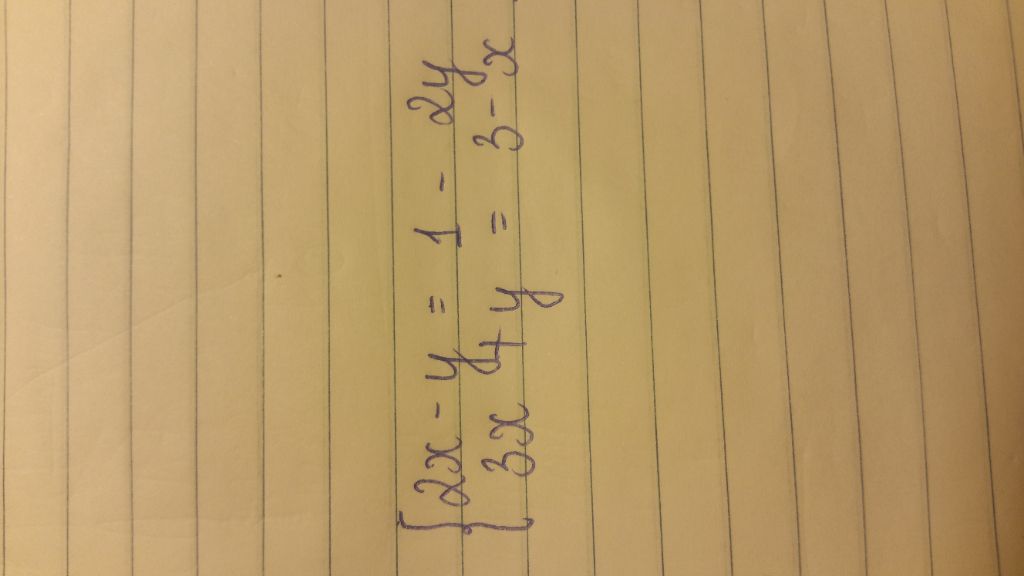 2x - y = 1 - 2y
3x + y = 3 - x